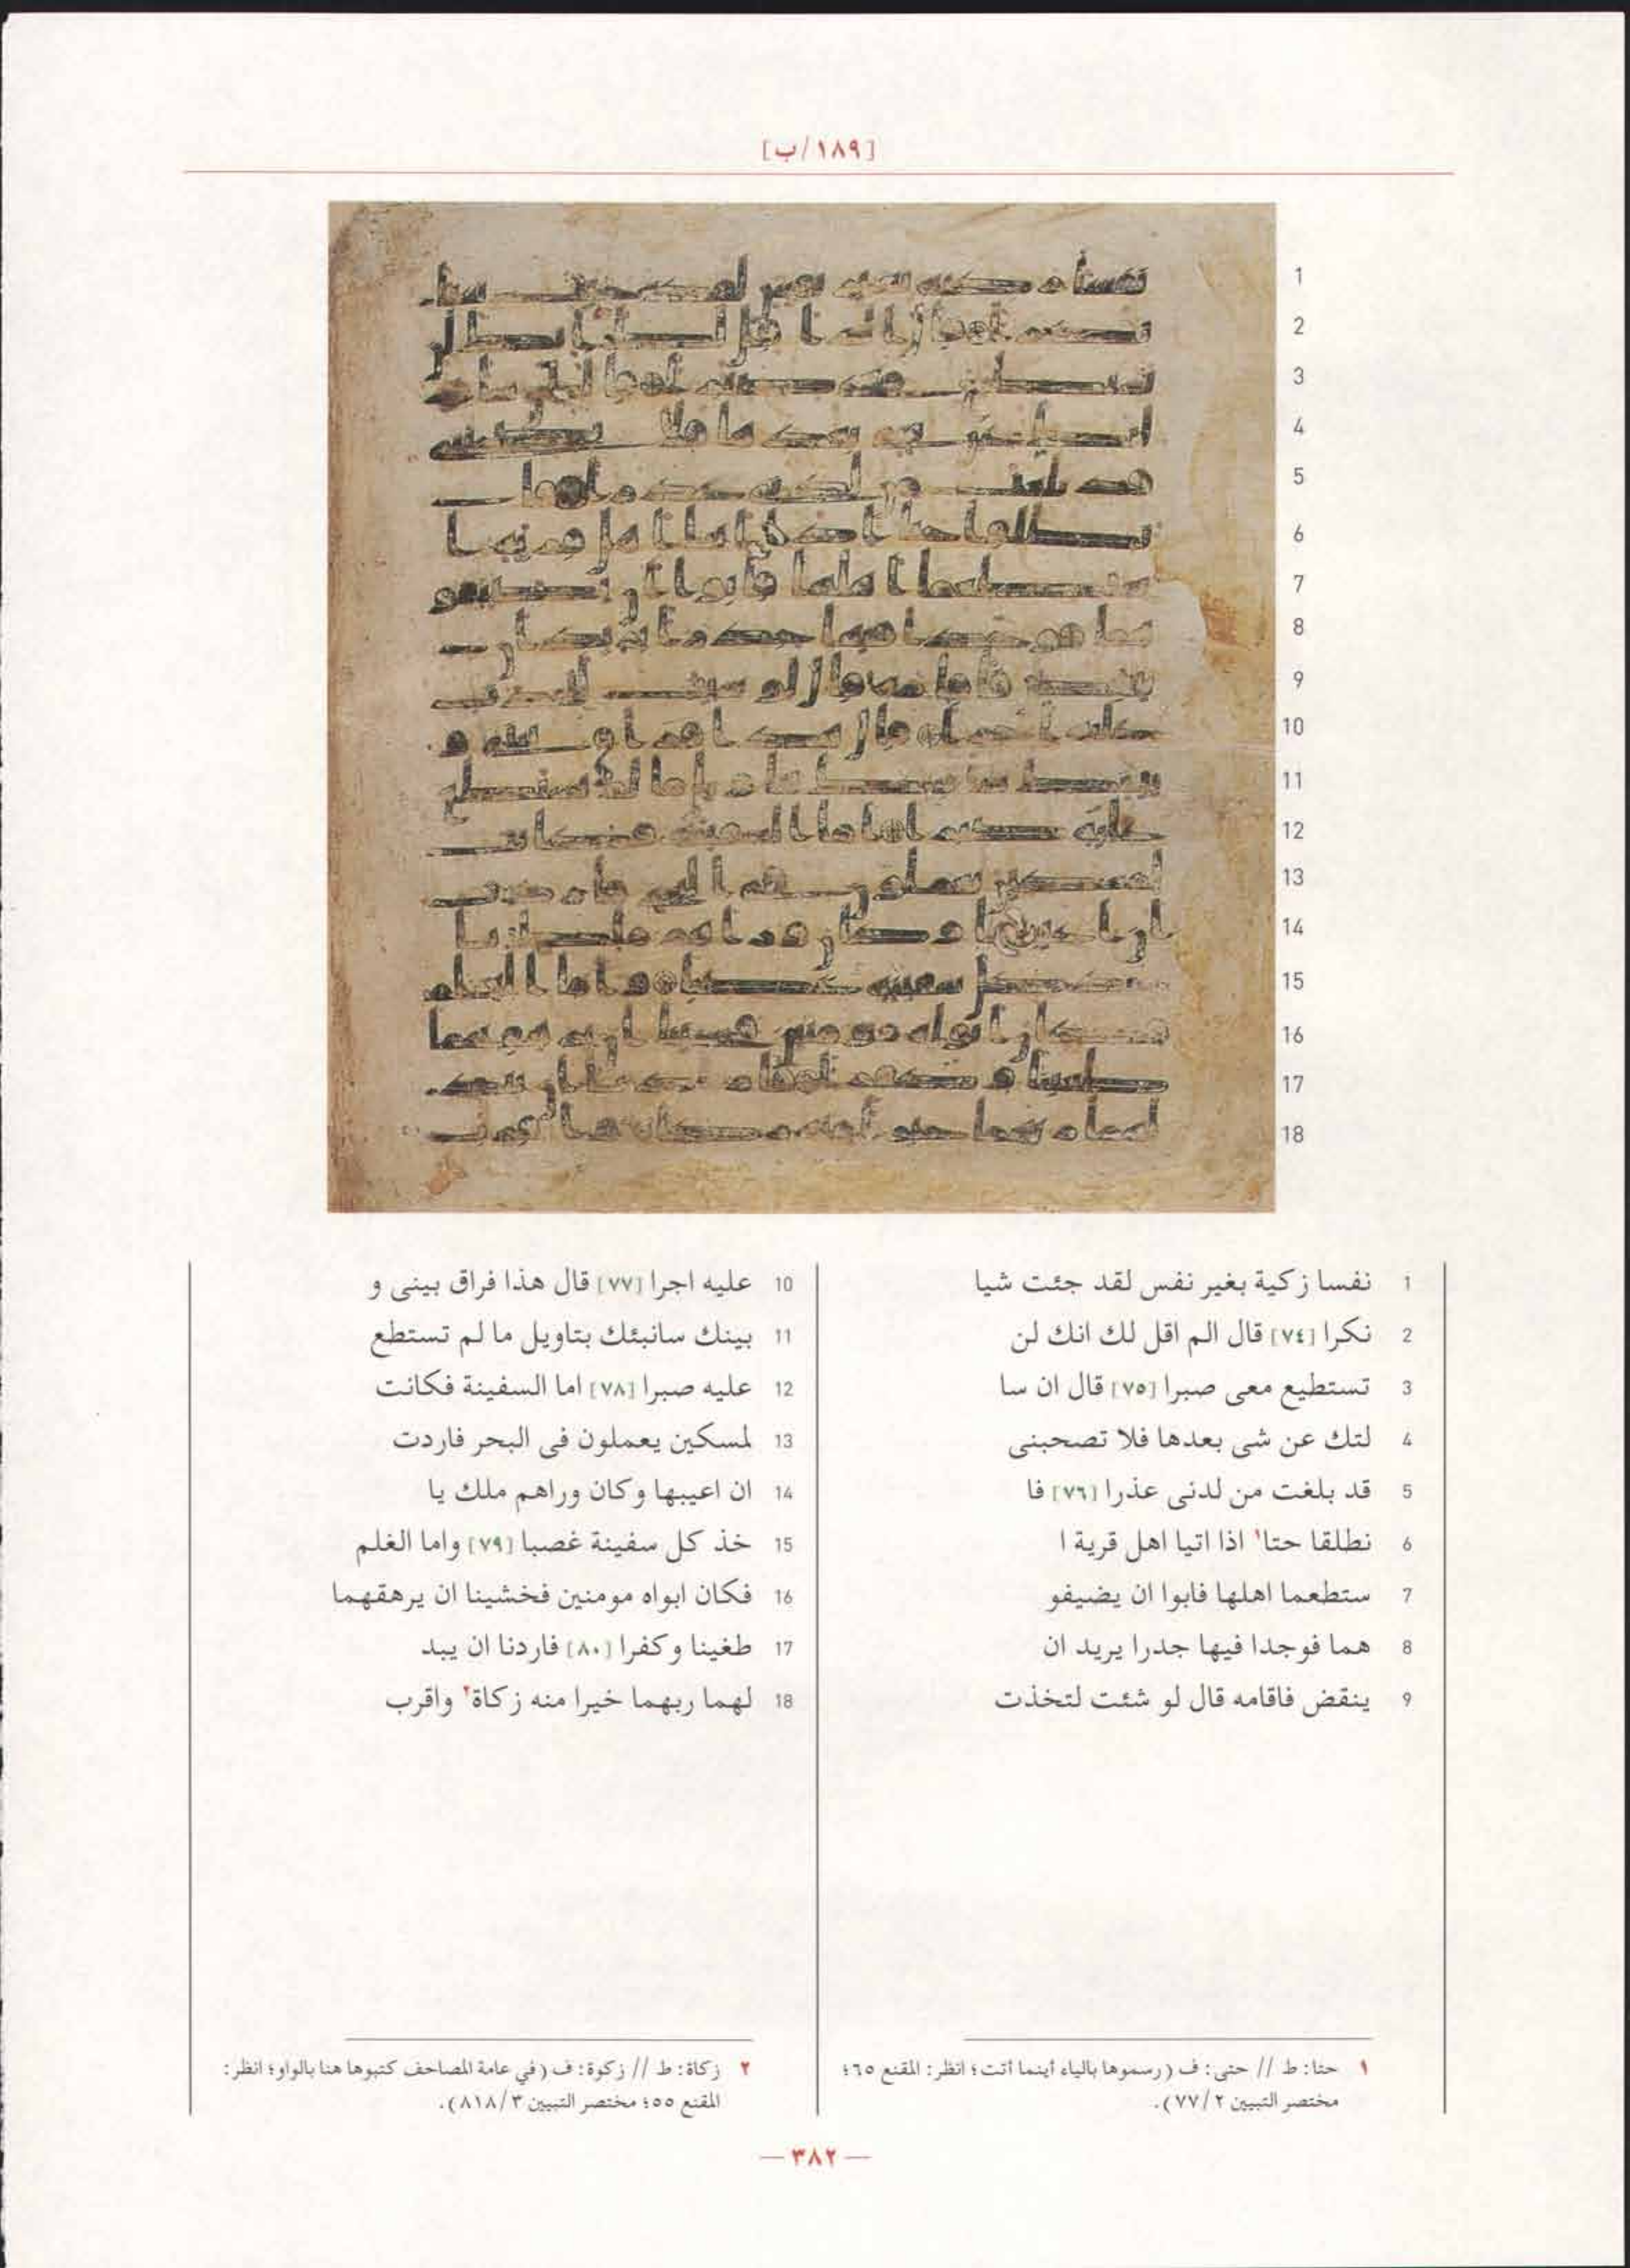 [١٨٩/ب]
1 نفسا زكية بغير نفس لقد جئت شيا
2 نكرا [٧٤] قال الم اقل لك انك لن
3 تستطيع معى صبرا [٧٥] قال ان سا
4 لتك عن شى بعدها فلا تصحبنى
5 قد بلغت من لدنى عذرا [٧٦] فا
6 نطلقا حتا١ اذا اتيا اهل قرية ا
7 ستطعما اهلها فابوا ان يضيفو
8 هما فوجدا فيها جدرا يريد ان
9 ينقض فاقامه قال لو شئت لتخذت
10 عليه اجرا [٧٧] قال هذا فراق بينى و
11 بينك سانبئك بتاويل ما لم تستطع
12 عليه صبرا [٧٨] اما السفينة فكانت
13 لمسكين يعملون فى البحر فاردت
14 ان اعيبها وكان وراهم ملك يا
15 خذ كل سفينة غصبا [٧٩] واما الغلم
16 فكان ابواه مومنين فخشينا ان يرهقهما
17 طغينا وكفرا [٨٠] فاردنا ان يبد
18 لهما ربهما خيرا منه زكاة٢ واقرب
١ حتا: ط // حتى: ف (رسموها بالياء أينما أتت؛ انظر: المقنع ٦٥؛
مختصر التبيين ٧٧/٢).
٢ زكاة: ط // زكوة: ف (في عامة المصاحف كتبوها هنا بالواو؛ انظر:
المقنع ٥٥؛ مختصر التبيين ٨١٨/٣).
— ٣٨٢ —